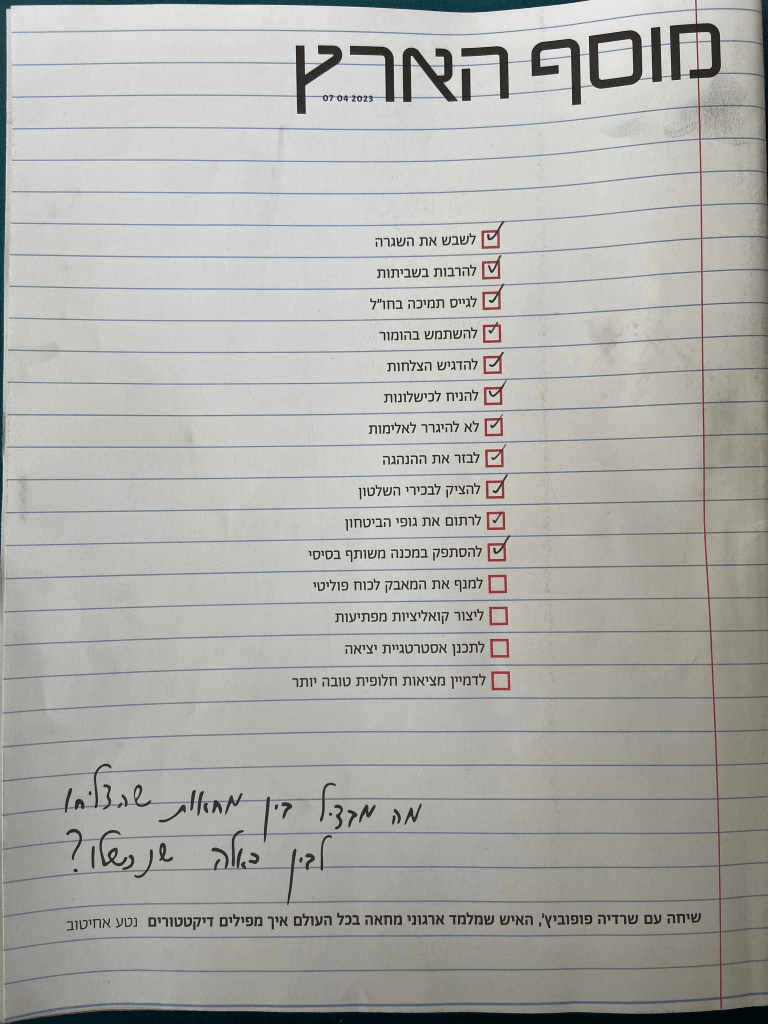 מוסף הארץ
07 04 2023
לשבש את השגרה
להרבות בשביתות
לגייס תמיכה בחו"ל
להשתמש בהומור
להדגיש הצלחות
להניח לכישלונות
לא להיגרר לאלימות
לבזר את ההנהגה
להציק לבכירי השלטון
לרתום את גופי הביטחון
להסתפק במכנה משותף בסיסי
למנף את המאבק לכוח פוליטי
ליצור קואליציות מפתיעות
לתכנן אסטרטגיית יציאה
לדמיין מציאות חלופית טובה יותר
מה מבדיל בין מחאות שהצליחו
לבין כאלה שנכשלו?
שיחה עם שרדיה פופוביץ', האיש שמלמד ארגוני מחאה בכל העולם איך מפילים דיקטטורים נטע אחיטוב